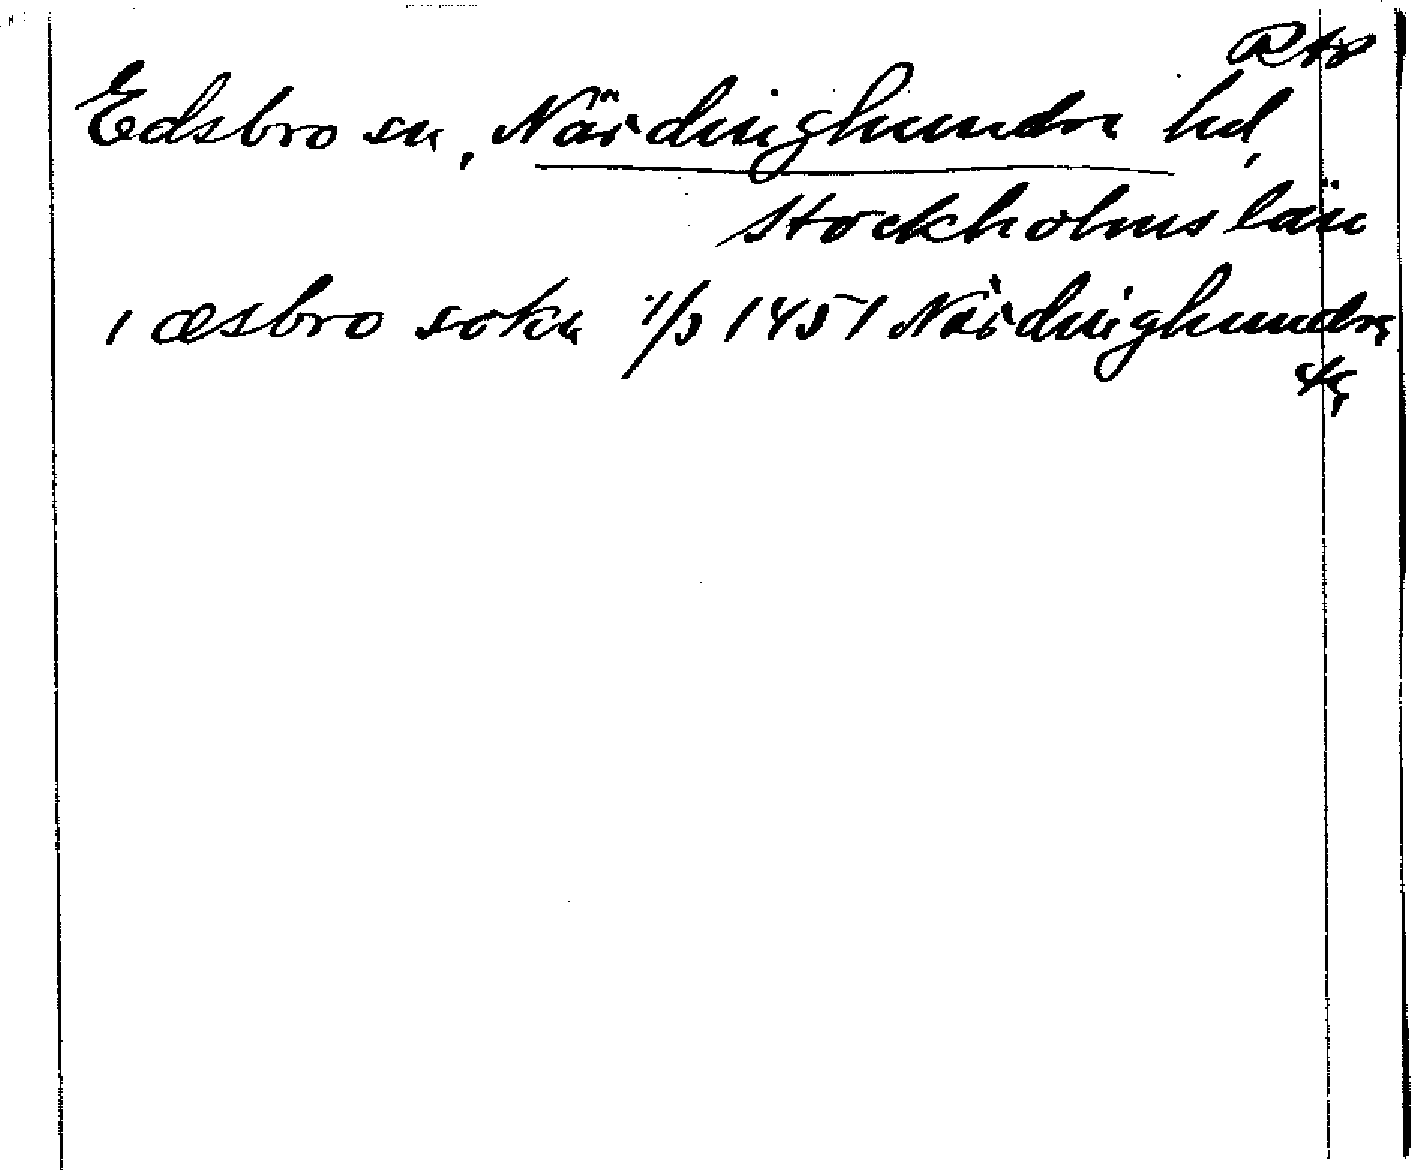 RAP
Edsbro sn, Närdinghundra hd,
Stockholms län
i æsbro sokn 1/3 1451 Närdinghundra